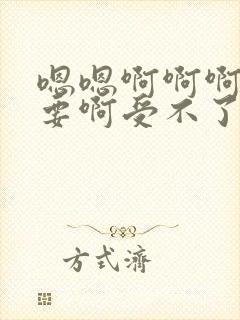 嗯嗯啊啊啊
要啊受不了
方式济